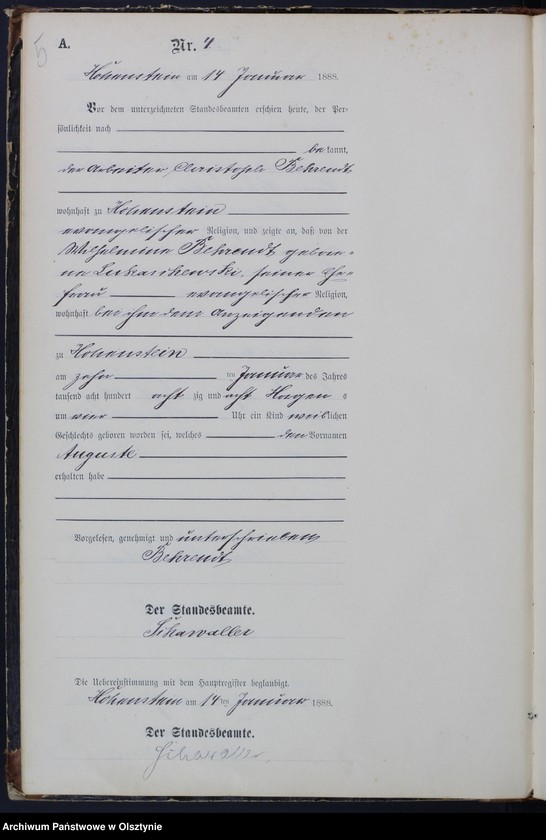 5
A.
Nr. 4
Hohenstein am 14 Januar 1888.
Vor dem unterzeichneten Standesbeamten erschien heute, der Per-
sönlichkeit nach
be kannt,
der Arbeiter, Christoph Behrendt
wohnhaft zu Hohenstein
evangelischer Religion, und zeigte an, daß von der
Wilhelmine Behrendt gebore-
ne Lukaschewski, seiner Ehe-
frau evangelischer Religion,
wohnhaft bei ihm dem Anzeigenden
zu Hohenstein
am zehn ten Januar des Jahres
tausend acht hundert acht zig und acht
um vier Uhr ein Kind weib lichen
Geschlechts geboren worden sei, welches den Vornamen
Auguste
erhalten habe
Vorgelesen, genehmigt und unterschrieben
Behrendt
Der Standesbeamte.
Die Uebereinstimmung mit dem Hauptregister beglaubigt.
Hohenstein am 14 ten Januar 1888.
Der Standesbeamte.
Archiwum Państwowe w Olsztynie